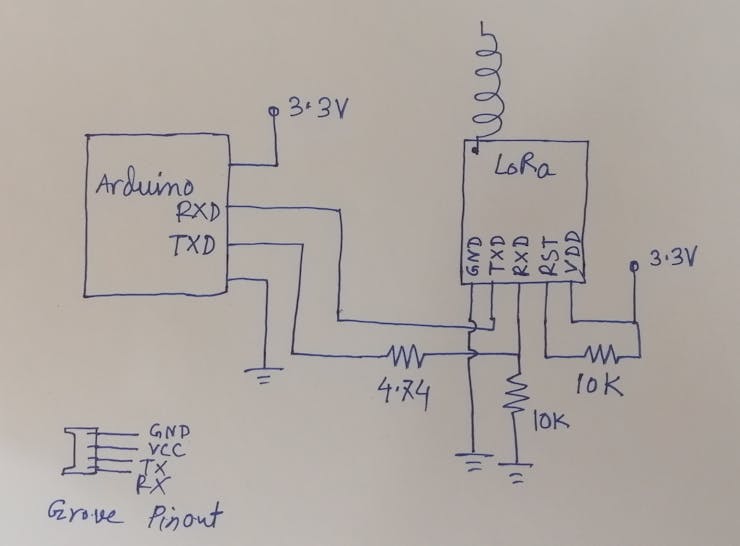 3.3V
Arduino
RXD
TXD
LoRa
GND
TXD
RXD
RST
VDD
3.3V
4.74
10K
10K
GND
VCC
TX
RX
Grove Pinout